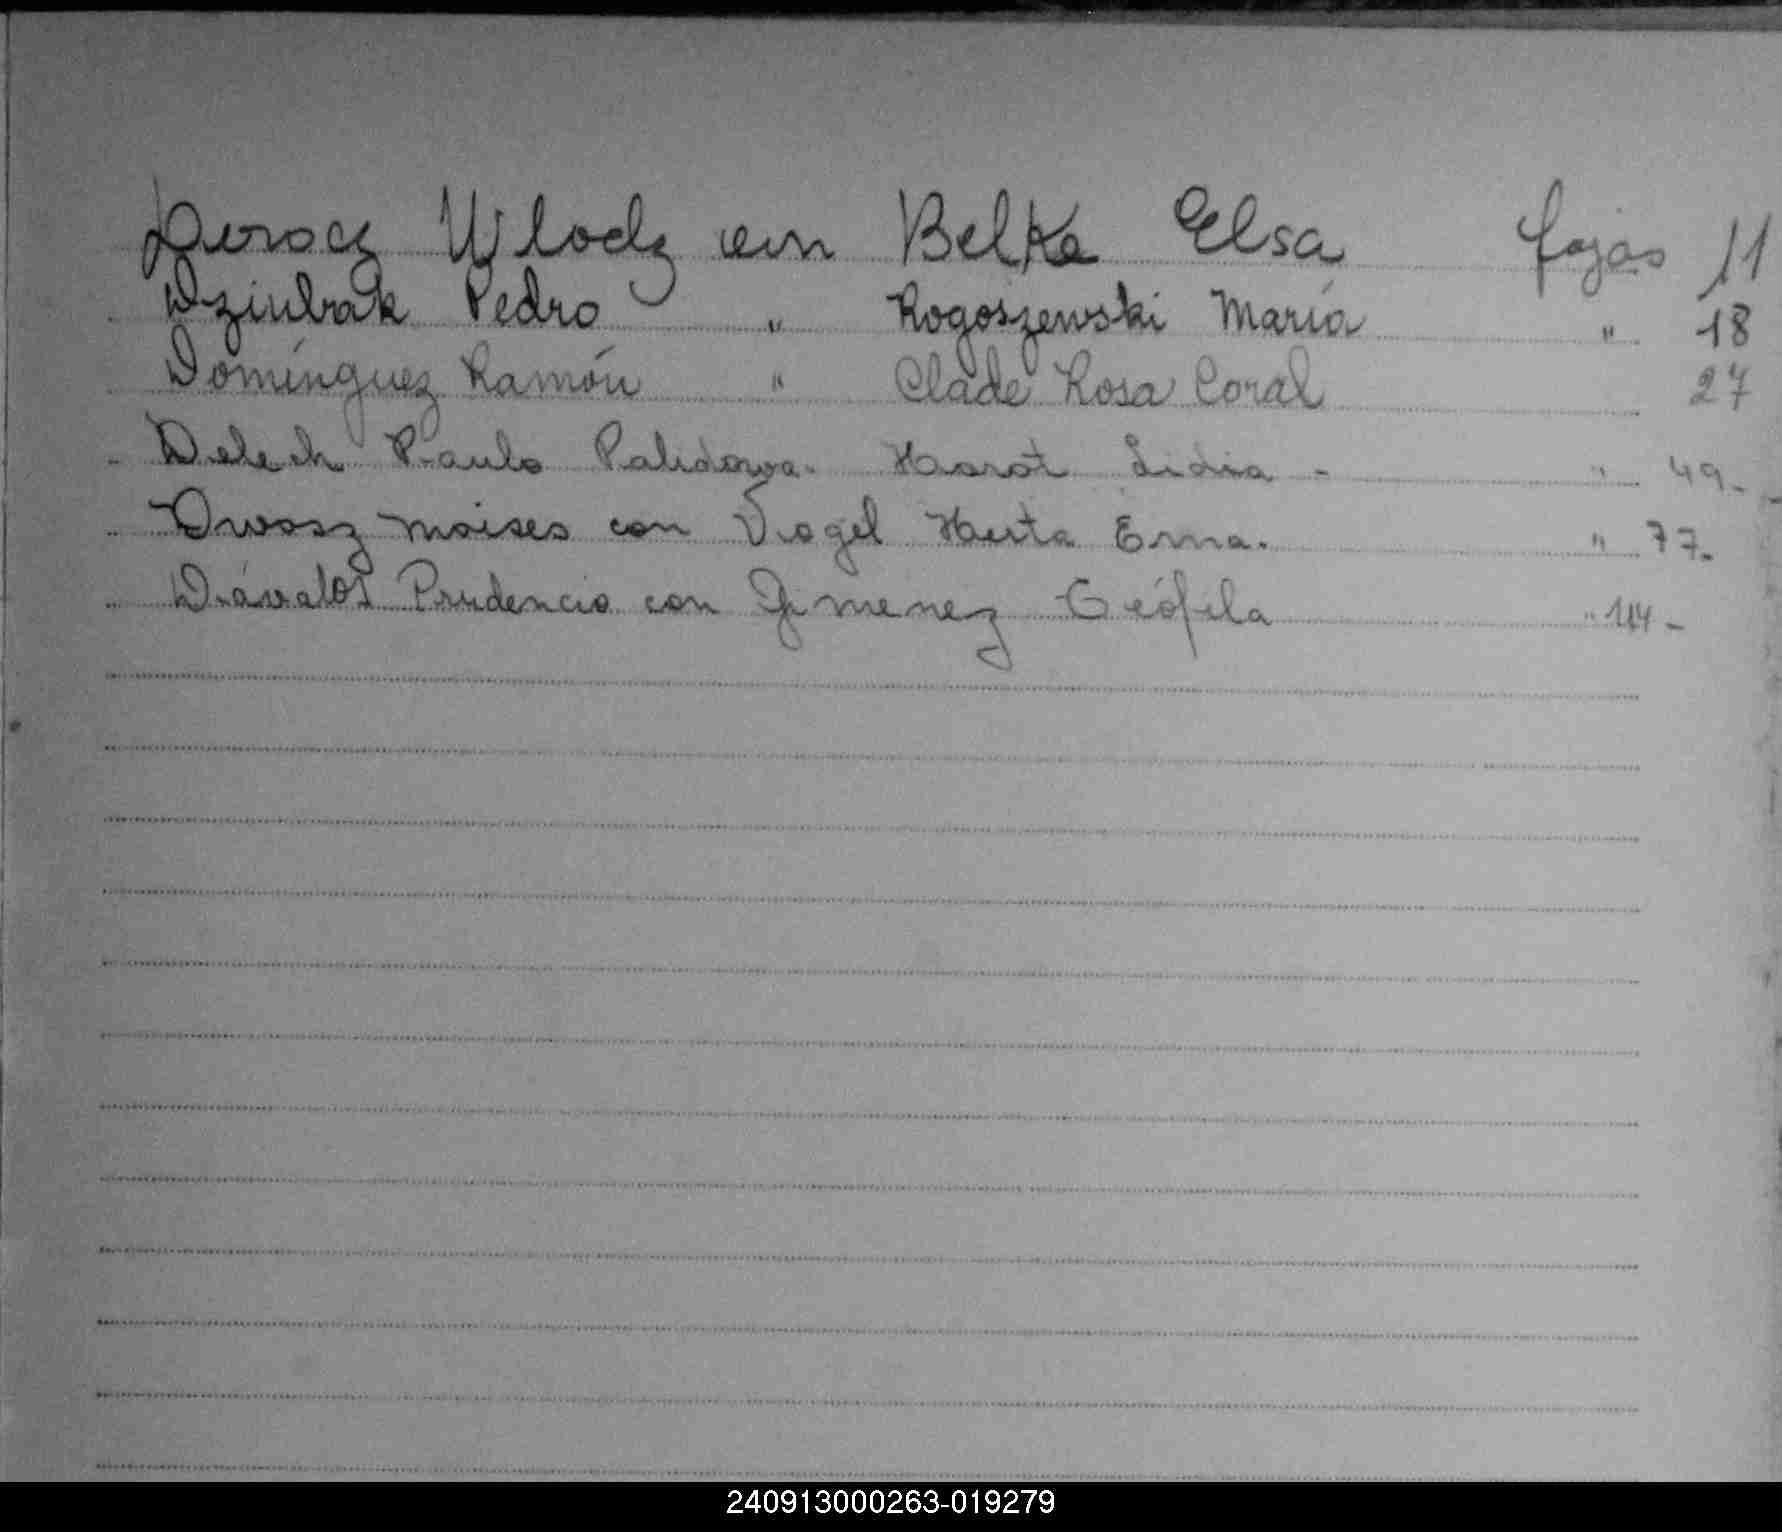 Dwocz Wlodz con Belke Elsa fojas 11
Dziubak Pedro " Rogoszewski María " 18
Domínguez Ramón " Clade Rosa Coral 27
Delech Paulo Harot Lidia - " 49-
Dwosz moises con Vogel Herta Erna. " 77.
Dávalos Prudencio con Jimenez Teófila " 114-
240913000263-019279